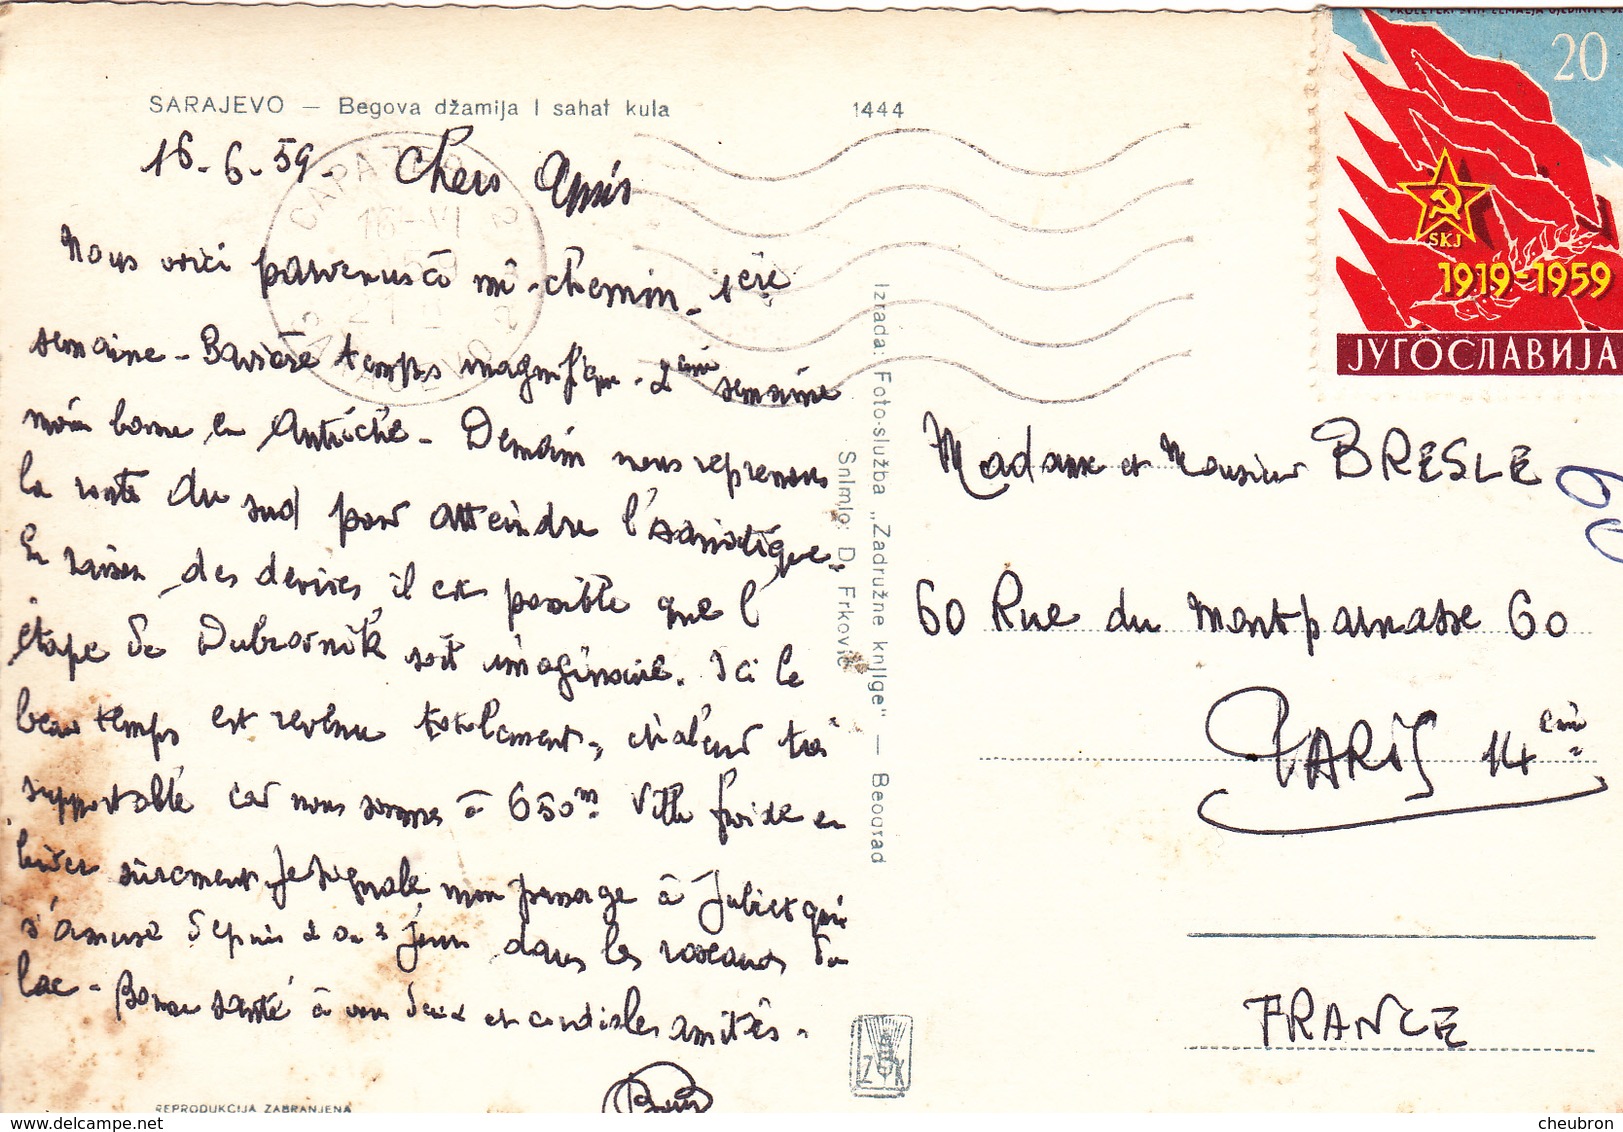 SARAJEVO — Begova džamija I sahat kula 1444
PROLETERI SVIH ZEMALJA UJEDINITE SE
20
SKJ
1919-1959
ЈУГОСЛАВИЈА
САРАЈЕВО 2
SARAJEVO 2
16-6-59. Chers Amis
Nous voici parvenus à mi-chemin. 1ère
semaine - Bavière temps magnifique. 2ème semaine
moins bonne en Autriche - Demain nous reprenons
la route du sud pour atteindre l'Adriatique.
En raison des devises il est possible que l'
étape de Dubrovnik soit imaginaire. Ici le
beau temps est revenu totalement, chaleur très
supportable car nous sommes à 650m. Ville froide en
hiver sûrement. Je signale mon passage à Juliet qui
s'amuse depuis 2 ou 3 jours dans les roseaux du
lac - Bonne santé à vous deux et cordiales amitiés.
Izrada: Foto-služba „Zadružne knjige" — Beograd
Snimio: D. Frković
Madame et Monsieur BRESLE
60 Rue du Montparnasse 60
PARIS 14ème
FRANCE
Z K
REPRODUKCIJA ZABRANJENA
www.delcampe.net
cheubron